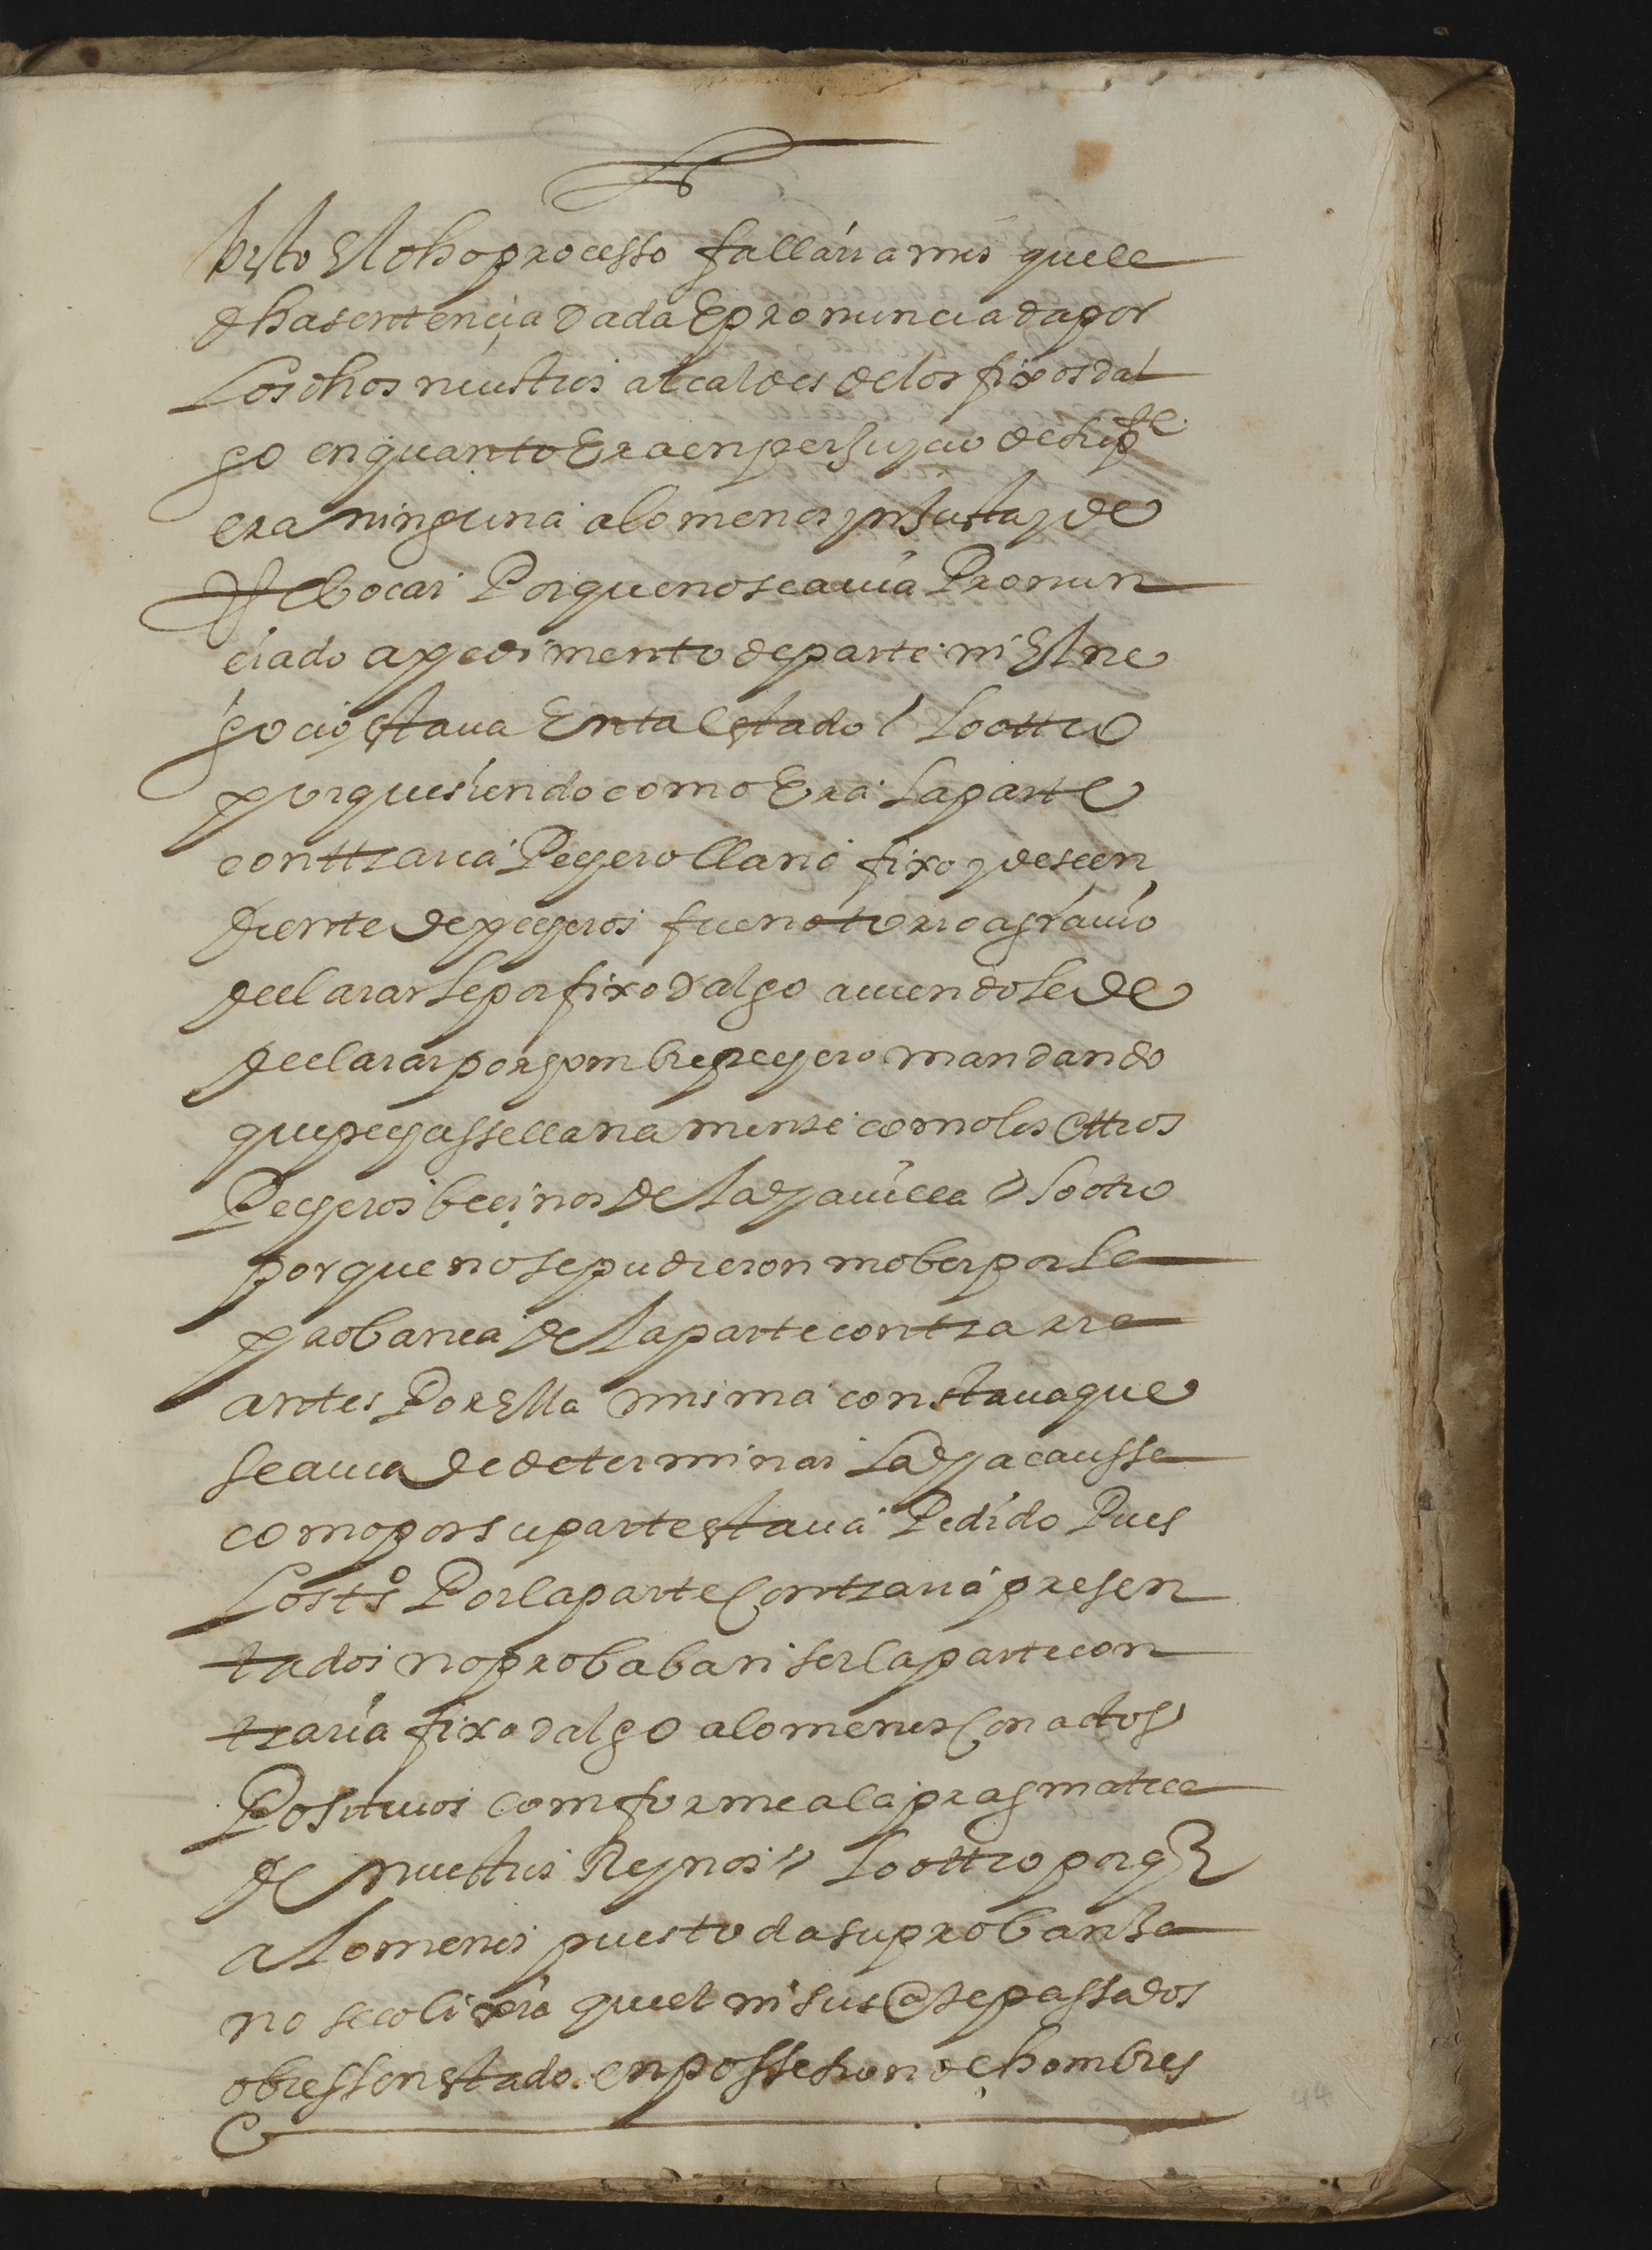 bisto El dho processo fallariamos que la
dha sentençia dada E pronunciada por
Los dhos nuestros alcaldes de los fixosdal
go en quanto Era en perjuyçio de su pte
era ninguna a lo menos ynjusta y de
Rebocar Porque no se auia Pronun
ciado a pedimento de parte ni El ne
gocio estaua En tal estado / Lo ottro
porque siendo como Era La parte
conttraria Pechero llano fixo y descen
diente de pecheros fue notorio agrauio
declararle por fixodalgo auiendole de
declarar por hombre pechero mandando
que pechasse llanamente como los ottros
Pecheros beçinos de La dha uilla / Lo otro
por que no se pudieron mober por la
probanca de La parte contraria
antes Por Ella misma constaua que
se auia de determinar La dha caussa
como por su parte estaua Pedido Pues
Los tsº Por la parte Contraria presen
tados no probaban ser la parte con
traria fixodalgo a lo menos Con actos
Positiuos comforme a la pragmatica
de nuestros Reynos // Lo ottro porq
a lo menos pues toda su probansa
no se colixia quel ni sus @tepassados
obiessen estado en possesion de hombres
44